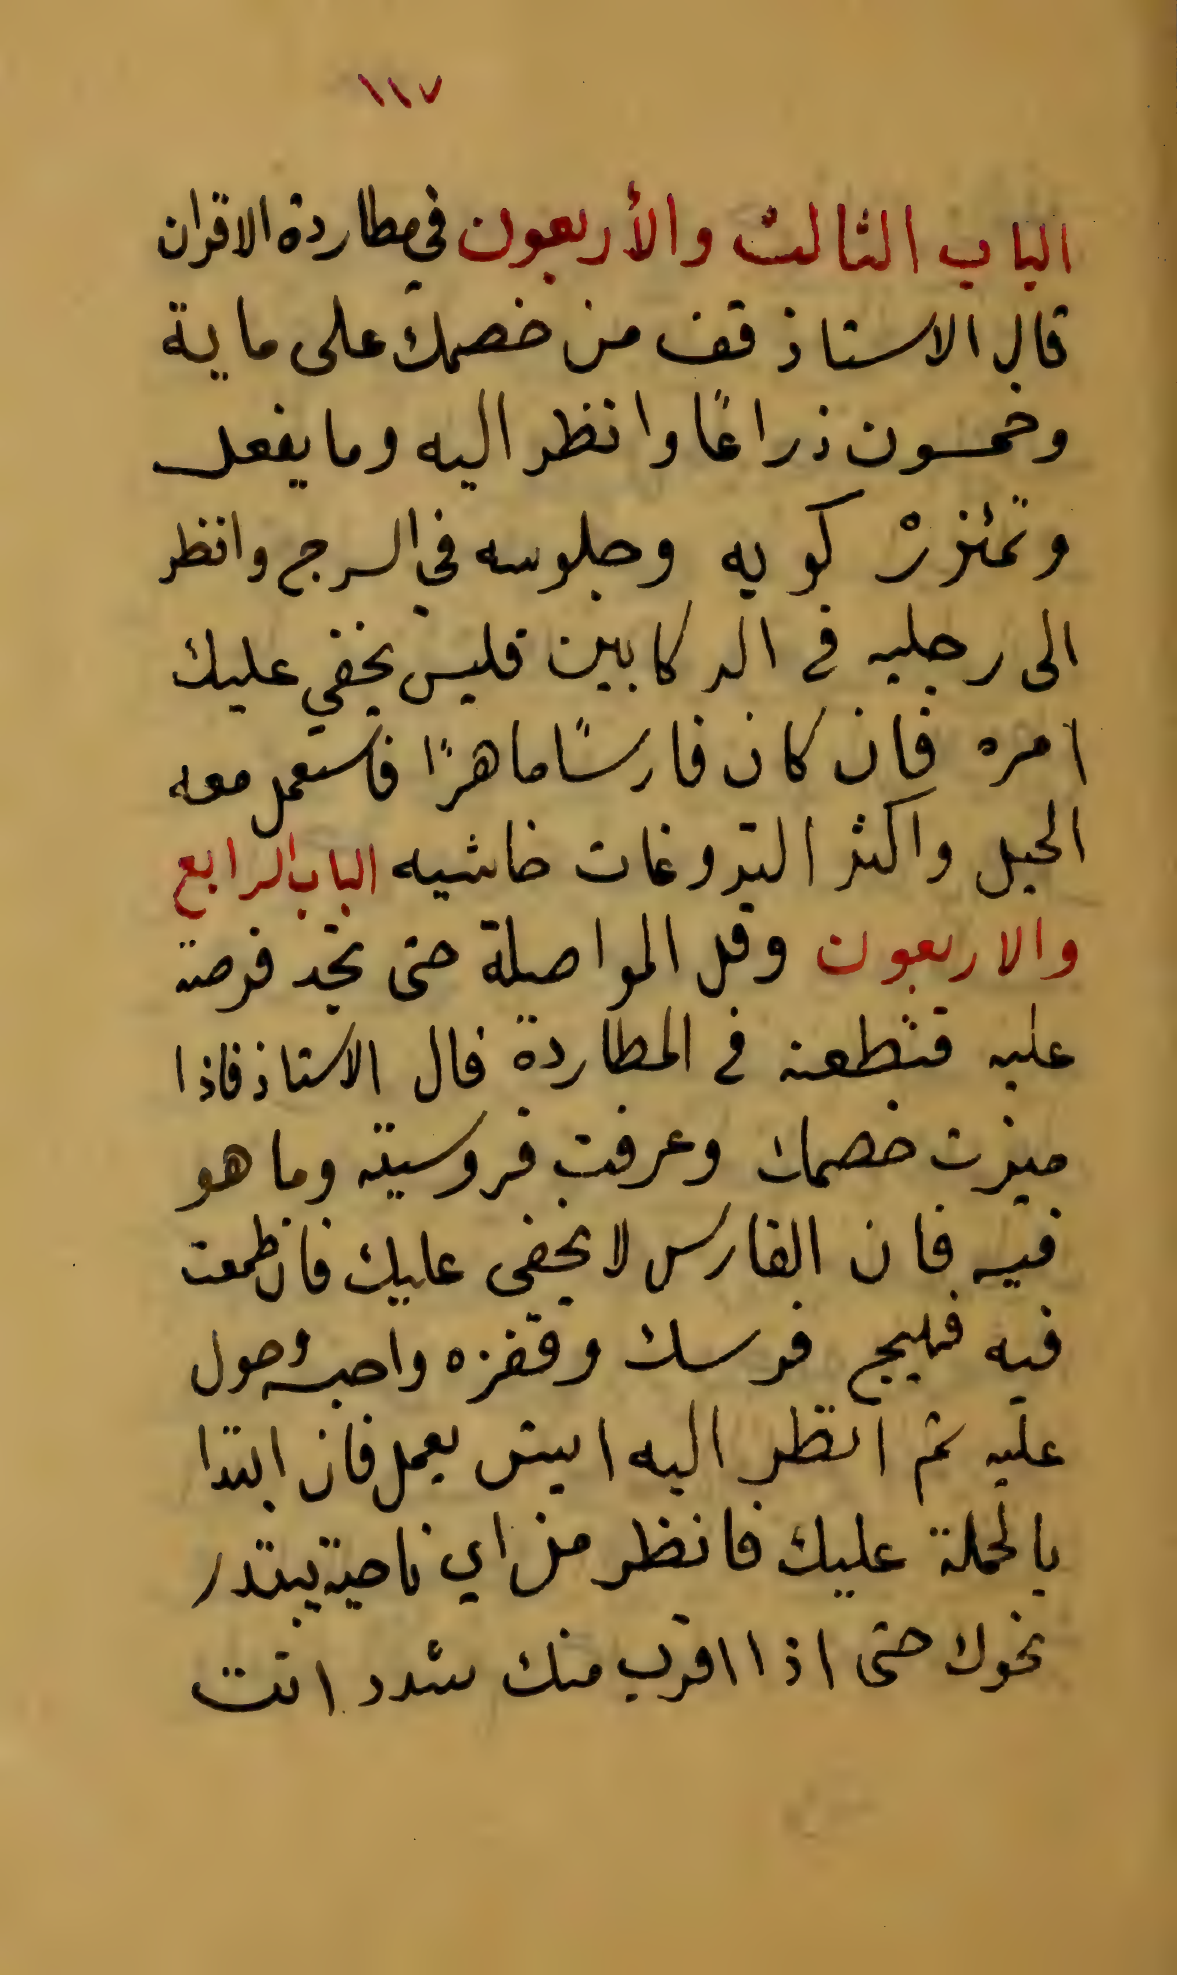 ١١٧
الباب الثالث والأربعون في مطاردة الاقران
قال الاستاذ قف من خصمك على ماية
وخمسون ذراعًا وانظر اليه وما يفعل
وتمئزرْ كويه وجلوسه في السرج وانظر
الى رجليه في الركابين فليس يخفي عليك
امره فان كان فارسًا ماهرًا فاستعمل معه
الحيل واكثر التروغات خاشيه الباب الرابع
والاربعون وقل المواصلة حتى تجد فرصة
عليه فتطعنه في المطاردة قال الاستاذ فاذا
ميزت خصمك وعرفت فروسيته وما هو
فيه فان الفارس لا يخفى عليك فان طمعت
فيه فهيج فرسك وقفزه واحبه وصول
عليه ثم انظر اليه ايش يعمل فان ابتدا
بالحملة عليك فانظر من اي ناحية يبتدر
نحوك حتى اذا اقرب منك شدد انت